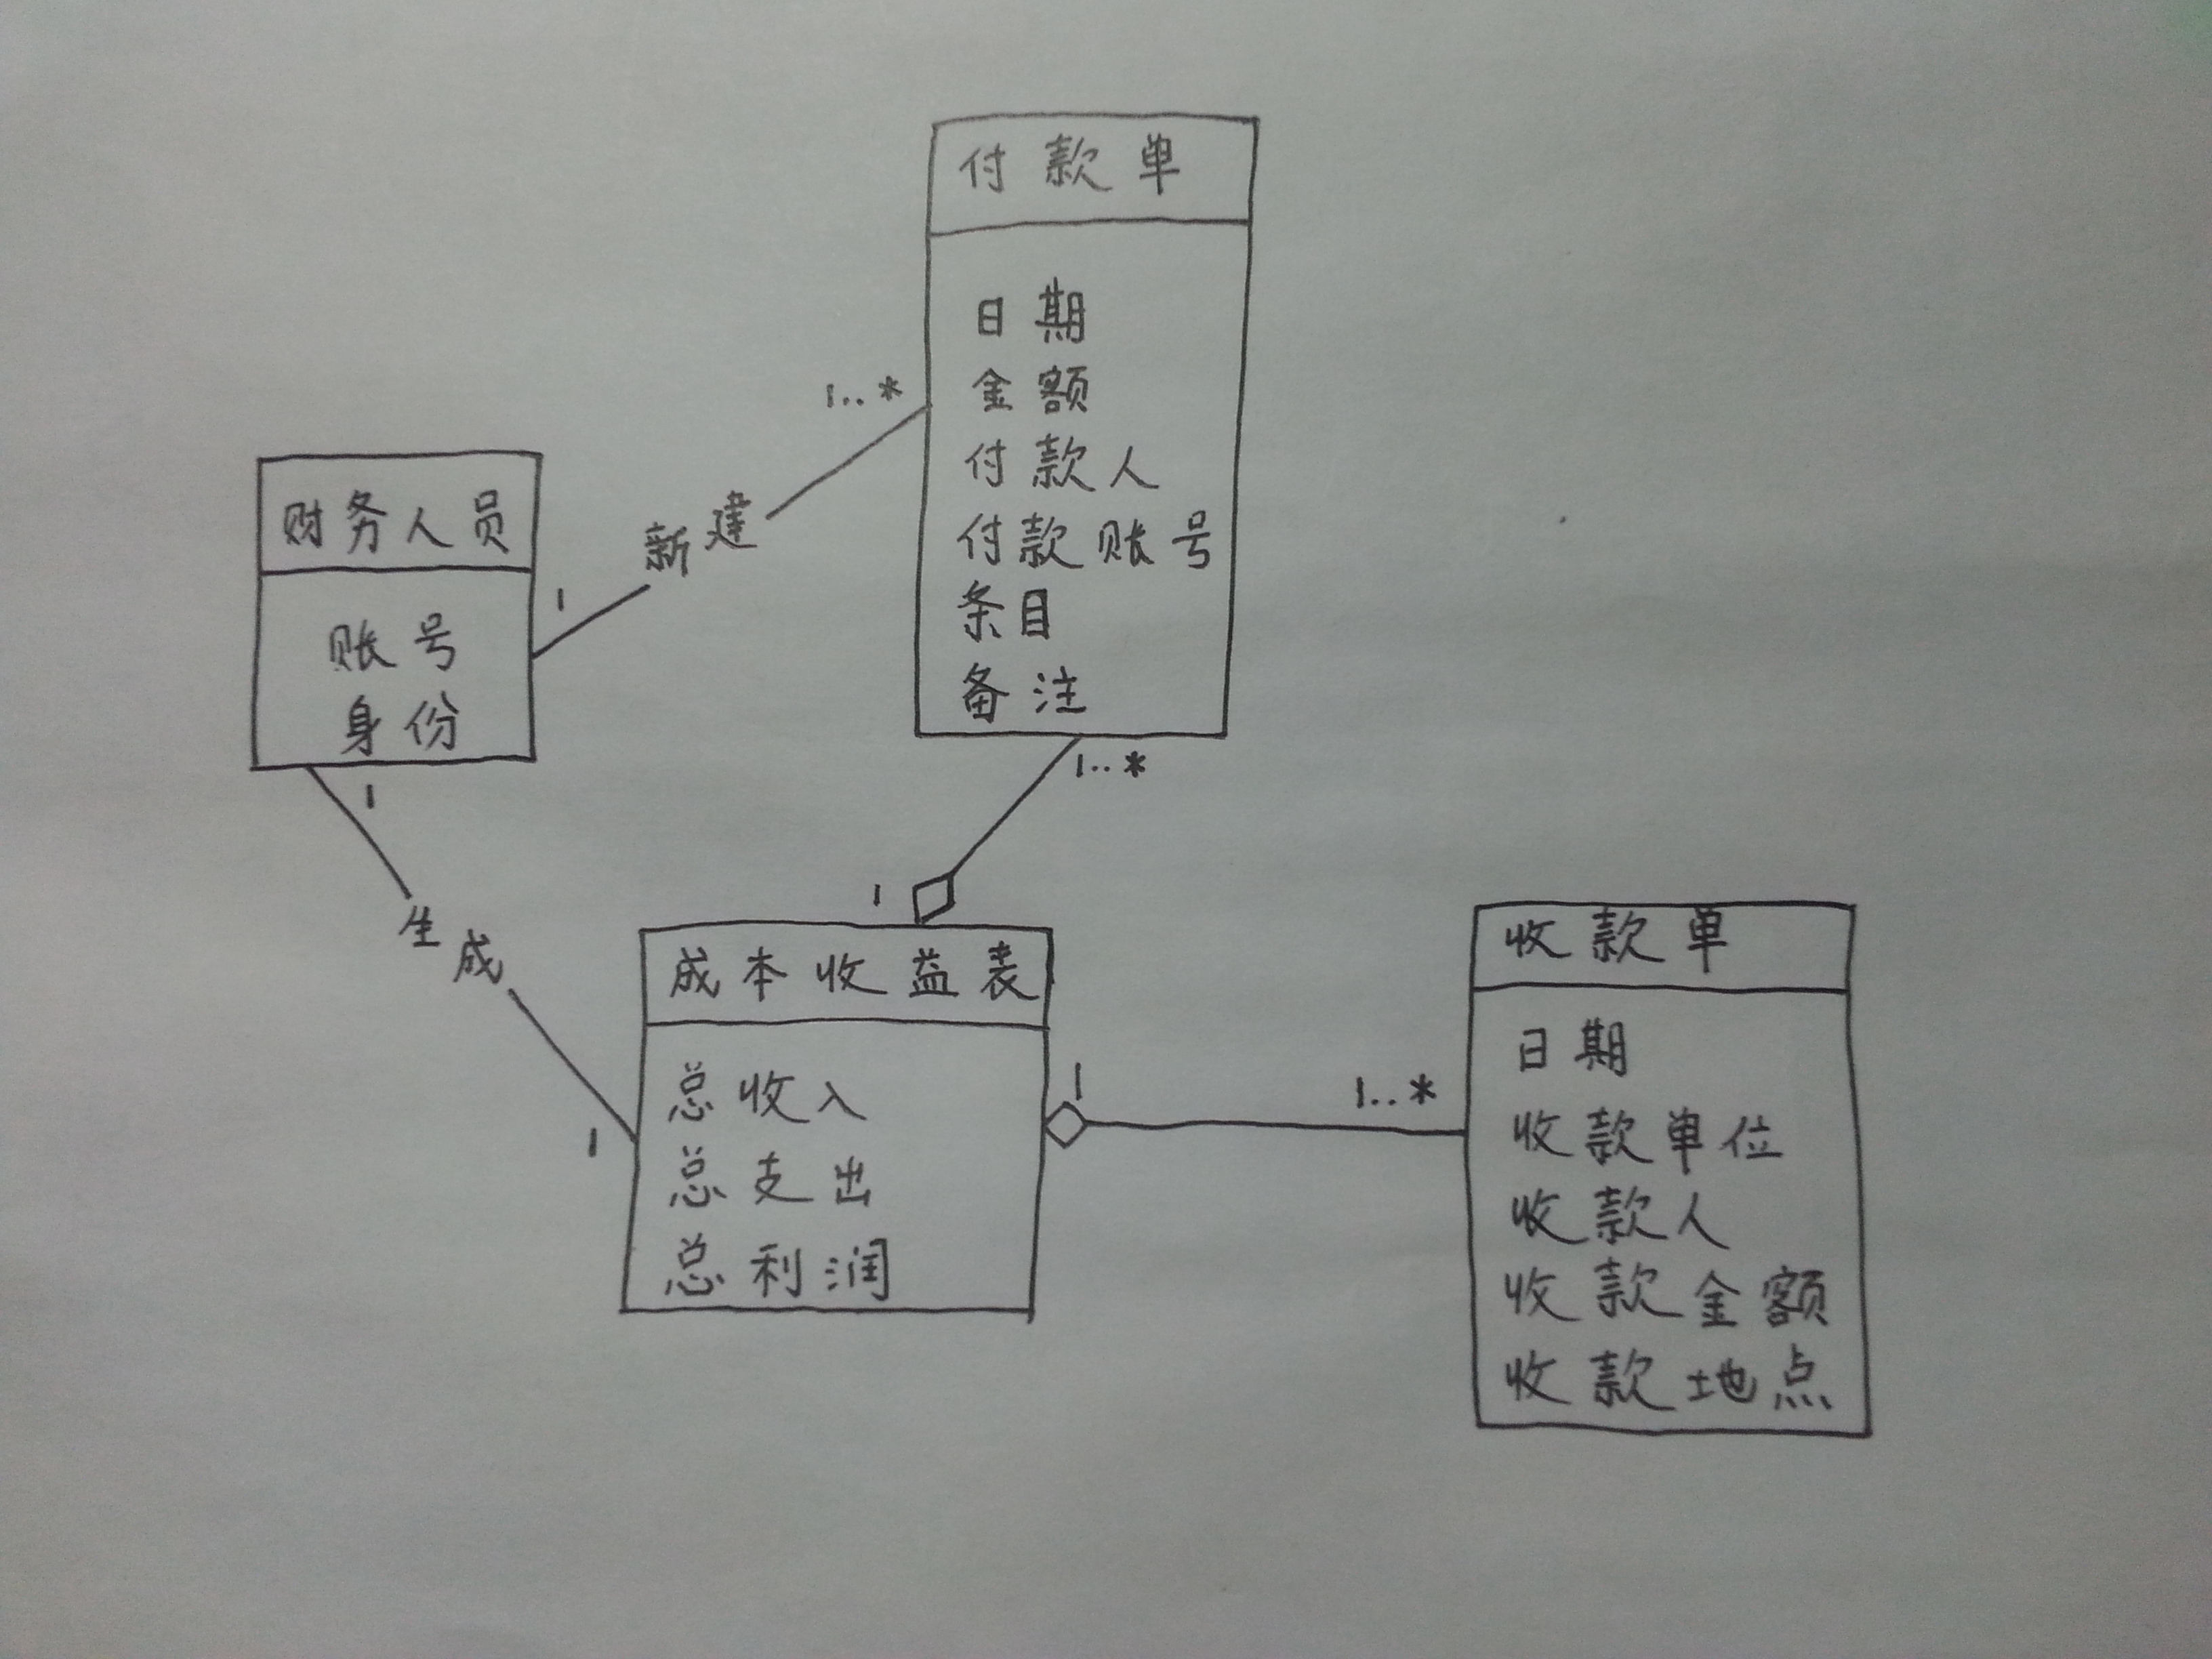 付款单
日期
金额
付款人
付款账号
条目
备注
1..*
新建
1
财务人员
账号
身份
1
生成
1
1..*
1
成本收益表
总收入
总支出
总利润
1
1..*
收款单
日期
收款单位
收款人
收款金额
收款地点